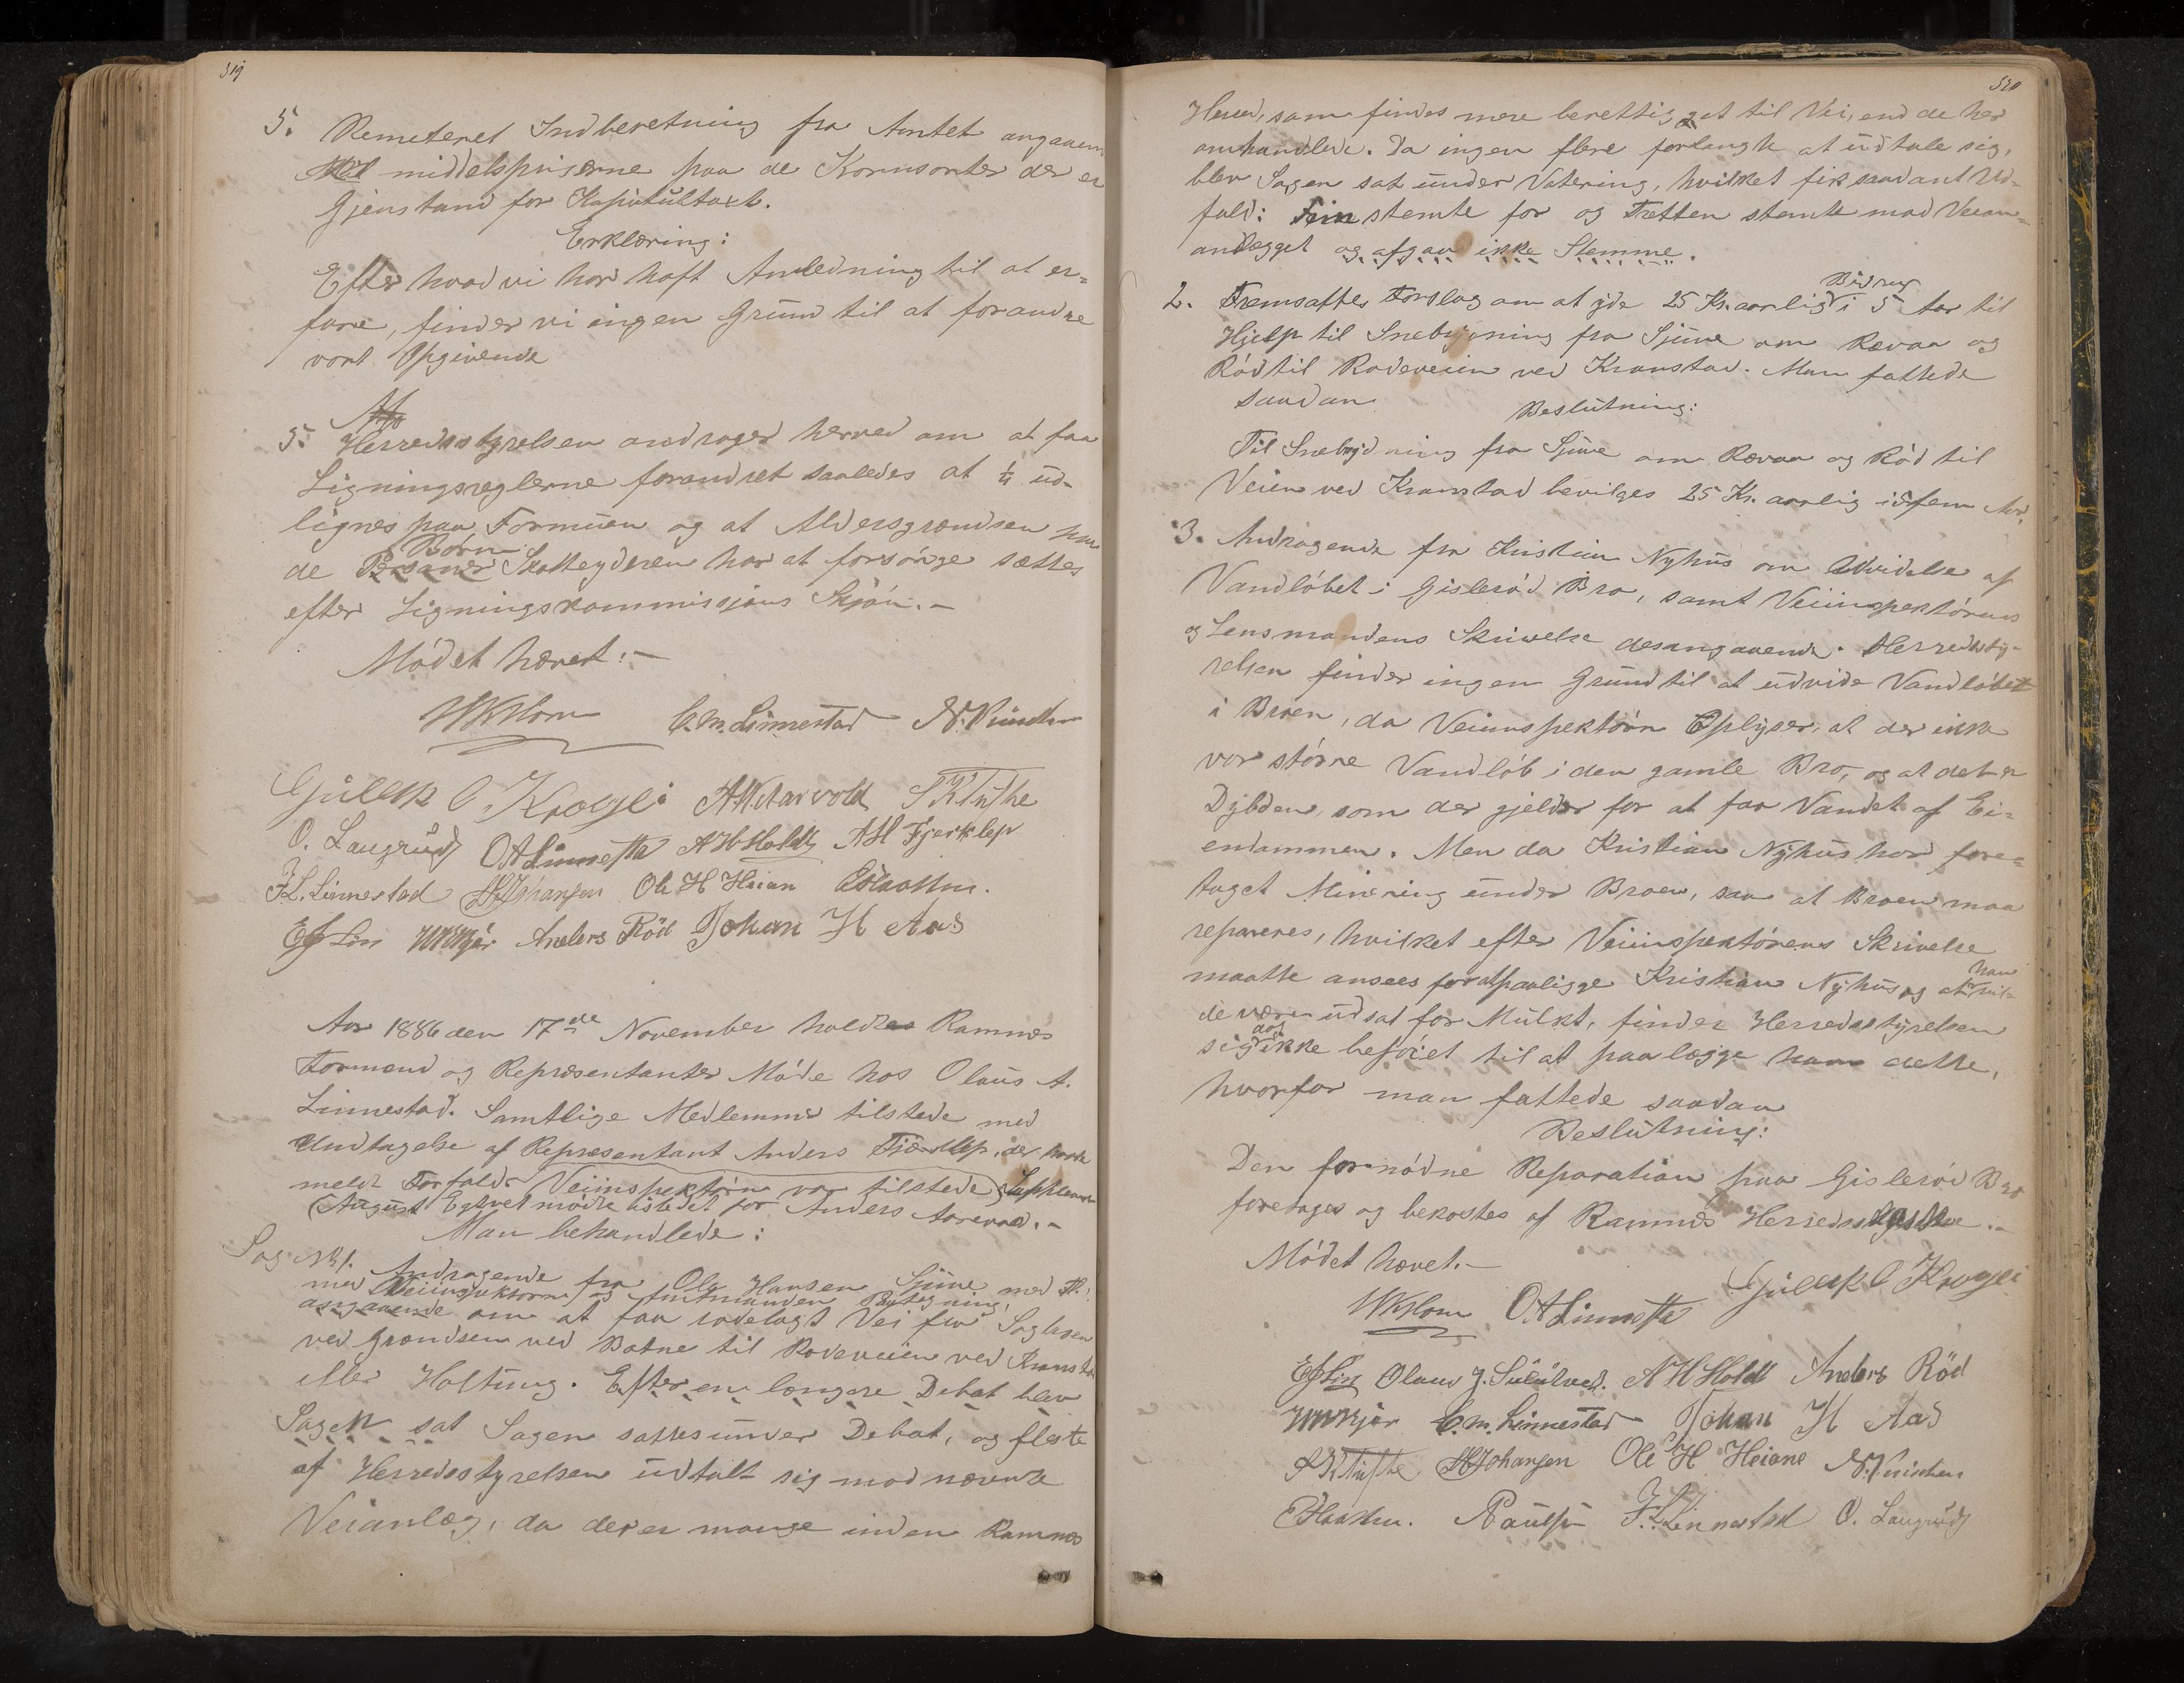 319
5. Remeteret Indberetning fra Amtet angaaende
middelspriserne paa de Kornsorter der er
Gjenstand for Kapitultaxt.
Erklæring:
Efter hvad vi har haft Anledning til at er=
fare, finder vi ingen Grund til at forandre
vort Opgivende
5. Herredsstyrelsen andrager herved om at faa
Ligningsreglerne forandret saaledes at 1/4 ud-
lignes paa Formuen og at Aldersgrændsen paa
Børn
de Personer Skatteyderen har at forsørge sættes
efter Ligningskommissjons Skjøn.-
Mødet hævet.-
HKHorn C.M. Linnestad
Gulleik O. Krogli A.N. Aarvold
O. Laugrud OALinnestad AHHoldt AH Fjerklep
F.L. Linnestad HJohansen Ole H Heian
Anders Röd Johan H Aas
Aar 1886 den 17de November holdtes Ramnæs
Formænd og Repræsentanter Møde hos Olaus A.
Linnestad. Samtlige Medlemmer tilstede med
Undtagelse af Repræsentant Anders Fjærklep, der havde
meldt Forfald. Veiinspektørn var tilstede, Supleant
(August mødte istedet for Anders Aarvold.-
Man behandlede:
Sag No 1. Andragende fra Ole Hansen Sjuve med
med Veiinspektørns og Amtmanden Paategning,
angaaende om at faa rodelagt Vei fra Saghaen
ved Grændsen ved Botne til Rodeveien ved Kronstad
eller Holtung. Efter en længere Debat blev
Sagen sat Sagen sattes under Debat, og fleste
af Herredsstyrelsen udtalt sig mod nævnte
Veianlæg, da der er mange inden Ramnæs
520
Herred, som findes mere berettiget til Vei, end de her
omhandlede. Da ingen flere forlangte at udtale sig,
blev Sagen sat under Votering, hvilket fik saadant Ud-
fald: Fem stemte for og Tretten stemte mod Veian=
andlægget og afgav ikke Stemme.
Bidrag
2. Fremsattes Forslag om at yde 25 Kr. aarlig i 5 Aar til
Hjelp til Snebrydning fra Sjuve om Revaa og
Rød til Rodeveien ved Kronstad. Man fattede
saadan
Beslutning:
Til Snebrydning fra Sjuve om Revaa og Rød til
Veien ved Kronstad bevilges 25 Kr. aarlig i 5 fem Aar.
3. Andragende fra Kristian Nyhus om Udvidelse af
Vandløbet i Gislerød Bro, samt Veiinspektørens
og Lensmandens Skrivelse desangaaende. Herredsty-
relsen finder ingen Grund til at udvide Vandløbet
i Broen, da Veiinspektørn Oplyser, at der ikke
var større Vandløb i den gamle Bro, og at det er
Dybden, som der gjelder for at faa Vandet af Ei=
endommen. Men da Kristian Nyhus har fore=
taget Minering under Broen, saa at Broen maa
repareres, hvilket efter Veiinspektørens Skrivelse
maatte ansees for at paaligge Kristian Nyhus og at han
de være udsat for Mulkt, finder Herredsstyrelsen
dog
sig ikke beføiet til at paalægge ham dette,
hvorfor man fattede saadan
Beslutning:
Den fornødne Reparation paa Gislerød Bro
foretages og bekostes af Ramnæs Herredskasse.-
Mødet hævet.-
HKHorn OALinnestad Gulleik O Krogli
AHHoldt Anders Röd
C.M. Linnestad Johan H Aas
HJohansen Ole H Heiane
Paulsen F.L. Linnestad O. Laugrud